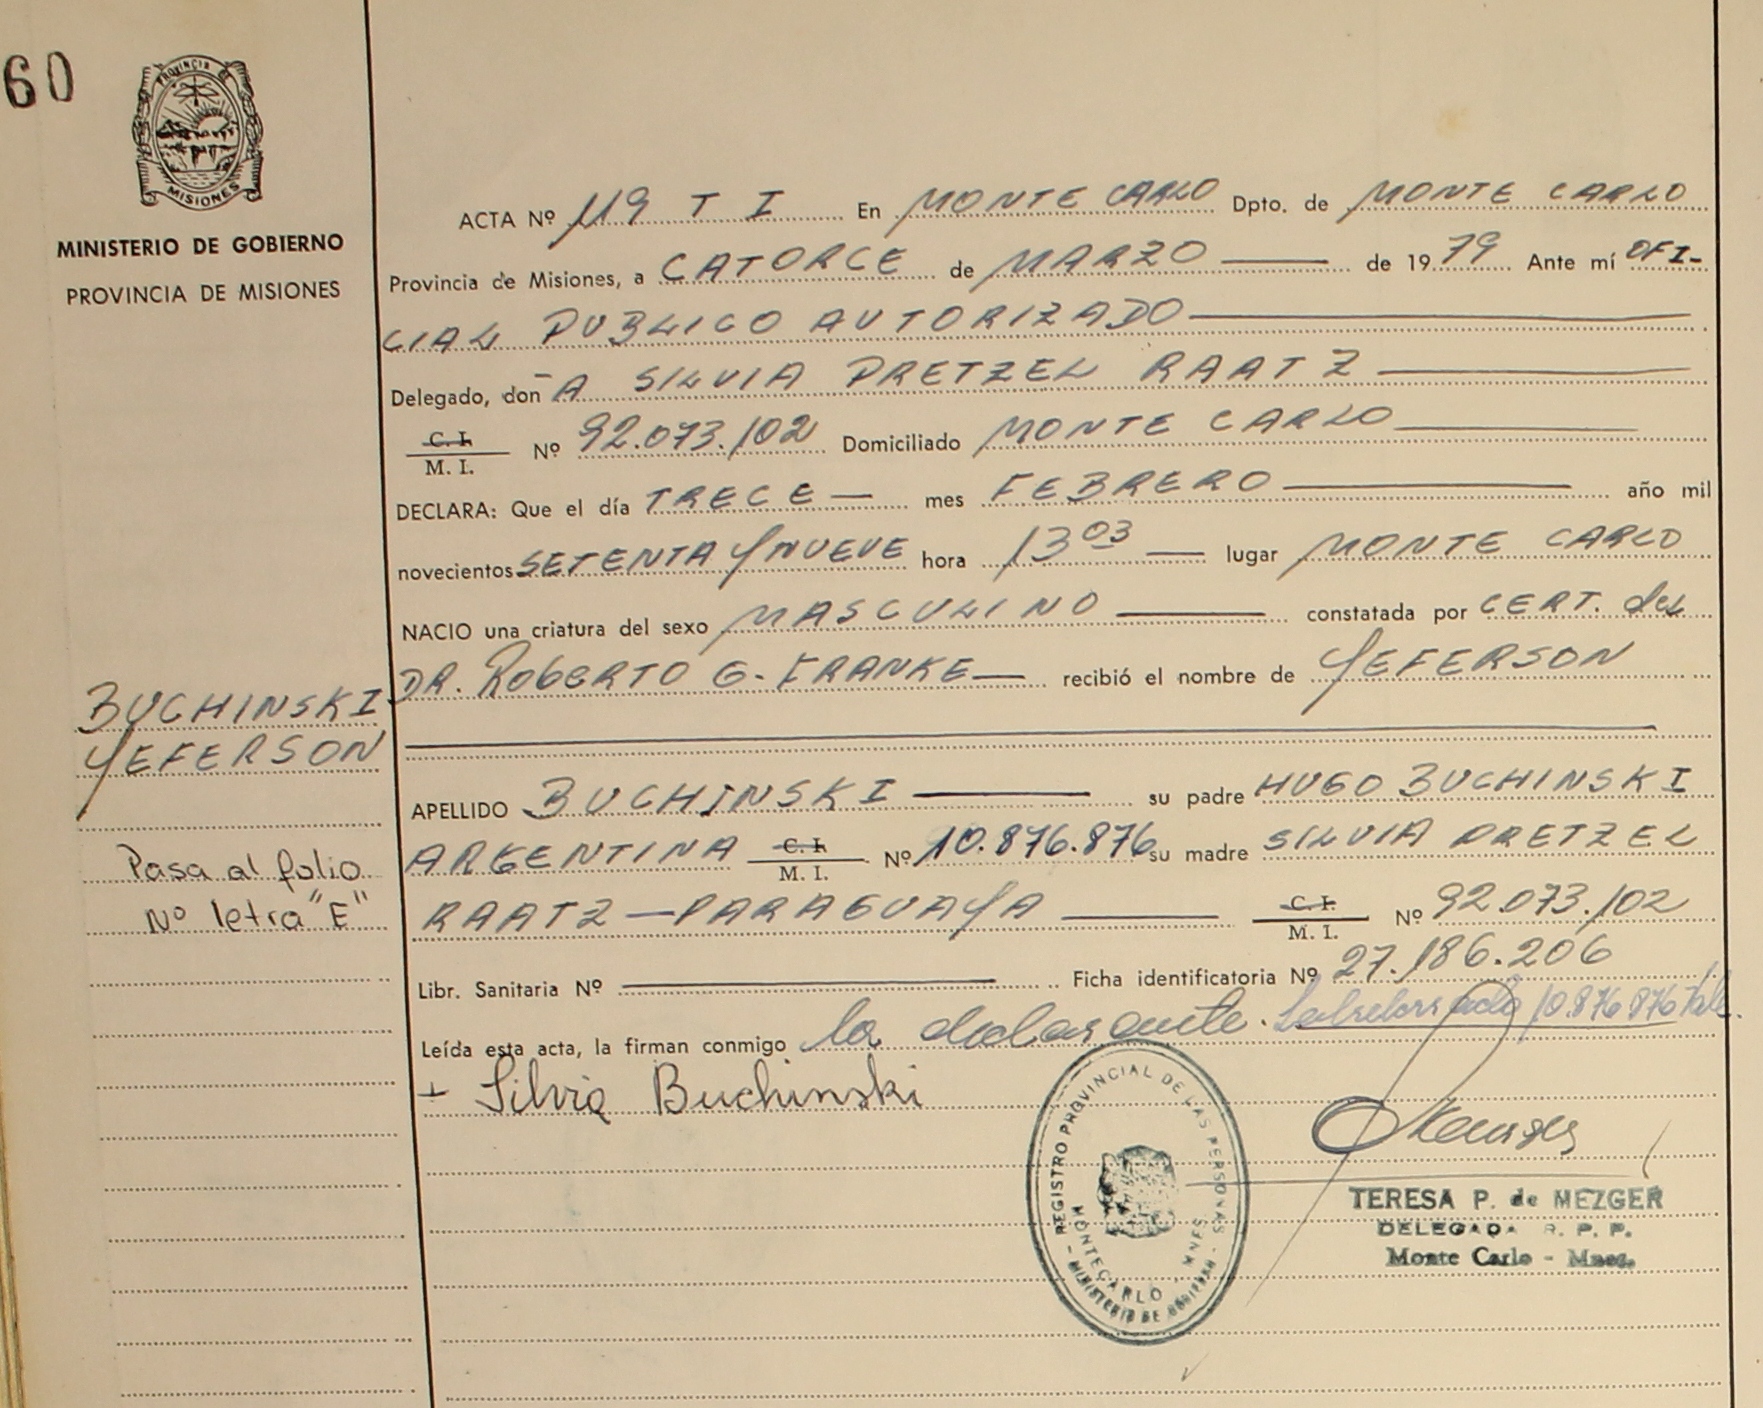 60
PROVINCIA DE
MISIONES
MINISTERIO DE GOBIERNO
PROVINCIA DE MISIONES
ACTA Nº 119 T I En MONTE CARLO Dpto. de MONTE CARLO
Provincia de Misiones, a CATORCE de MARZO de 1979 Ante mí OFI-
CIAL PUBLICO AUTORIZADO
Delegado, don A SILVIA PRETZEL RAATZ
C. I.
M. I. Nº 92.073.102 Domiciliado MONTE CARLO
DECLARA: Que el día TRECE mes FEBRERO año mil
novecientos SETENTA Y NUEVE hora 13 03 lugar MONTE CARLO
NACIO una criatura del sexo MASCULINO constatada por CERT. del
DR. ROBERTO G. FRANKE recibió el nombre de YEFERSON
BUCHINSKI
YEFERSON
APELLIDO BUCHINSKI su padre HUGO BUCHINSKI
ARGENTINA C. I. M. I. Nº 10.876.876 su madre SILVIA PRETZEL
RAATZ — PARAGUAYA C. I. M. I. Nº 92.073.102
Pasa al folio
Nº letra "E"
Libr. Sanitaria Nº Ficha identificatoria Nº 27.186.206
Leída esta acta, la firman conmigo la declarante. Sobreborrado 10.876.876 Vale.
+ Silvia Buchinski
REGISTRO PROVINCIAL DE LAS PERSONAS
MONTECARLO - MNES
- MINISTERIO DE GOBIERNO -
TERESA P. de MEZGER
DELEGADA R. P. P.
Monte Carlo - Mnes.